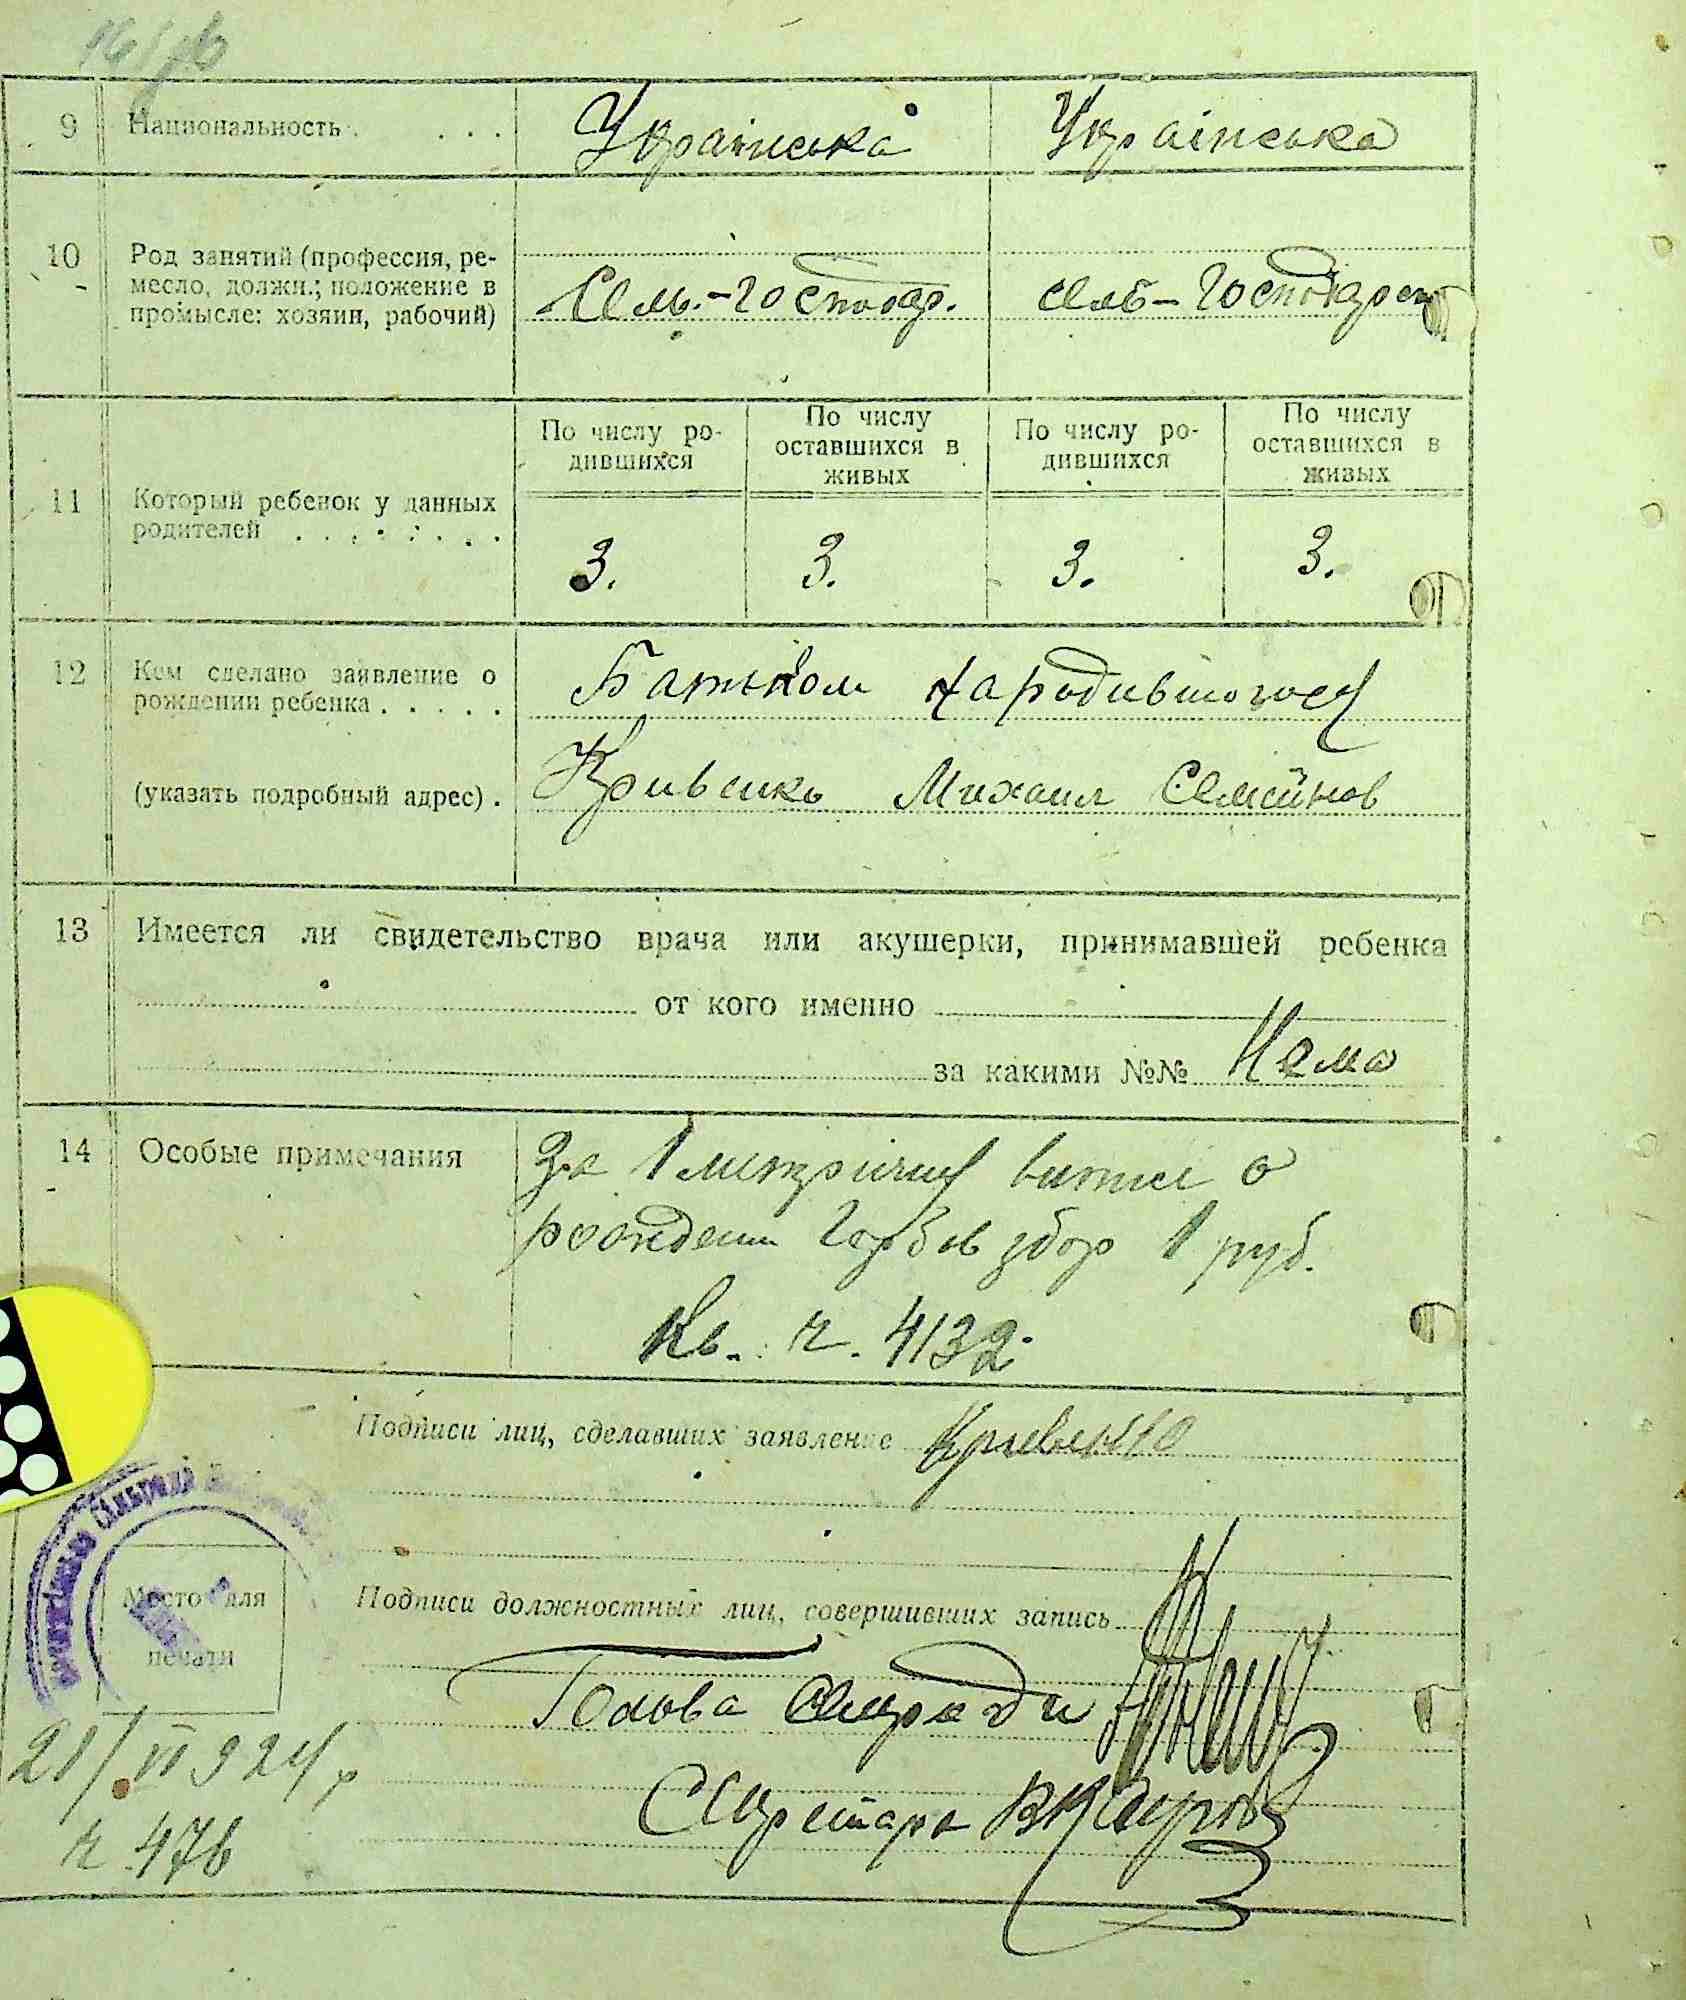 9 Национальность . . . . Українська Українська
10 Род занятий (профессия, ре-
месло, должн.; положение в
промысле: хозяин, рабочий)
Сель.-Господар. сель-Господарст
По числу ро-
дившихся
По числу
оставшихся в
живых
По числу ро-
дившихся
По числу
оставшихся в
живых
11 Который ребенок у данных
родителей . . . . . . . .
3. 3. 3. 3.
12 Кем сделано заявление о
рождении ребенка . . . . .
Батьком народившогося
(указать подробный адрес) . Кривенко Михаил Семенов
13 Имеется ли свидетельство врача или акушерки, принимавшей ребенка
от кого именно
за какими №№ Нема
14 Особые примечания
За 1 метричну витяг о
рождении Гербов збор 1 руб.
Кв. ч. 4132.
Подписи лиц, сделавших заявление Кривенко
Место для
печати
Подписи должностных лиц, совершивших запись
Голова Сільради
Секретарь
21/VI 924 р
ч 476